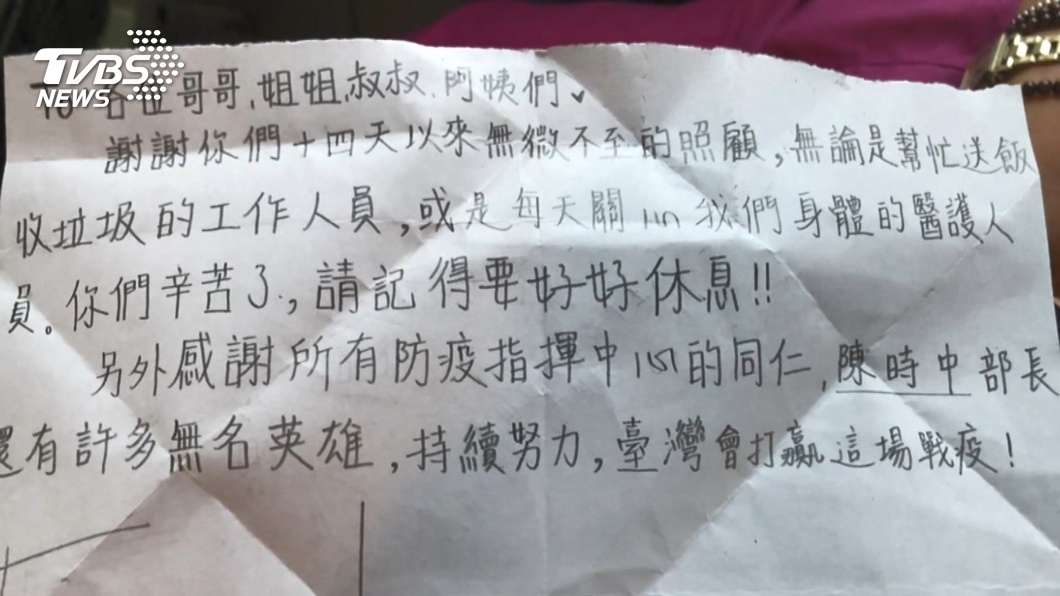 TVBS
NEWS
To 各位哥哥、姐姐、叔叔、阿姨們♥
謝謝你們十四天以來無微不至的照顧,無論是幫忙送飯
收垃圾的工作人員,或是每天關心我們身體的醫護人
員。你們辛苦了,請記得要好好休息!!
另外感謝所有防疫指揮中心的同仁,陳時中部長
還有許多無名英雄,持續努力,臺灣會打贏這場戰疫!